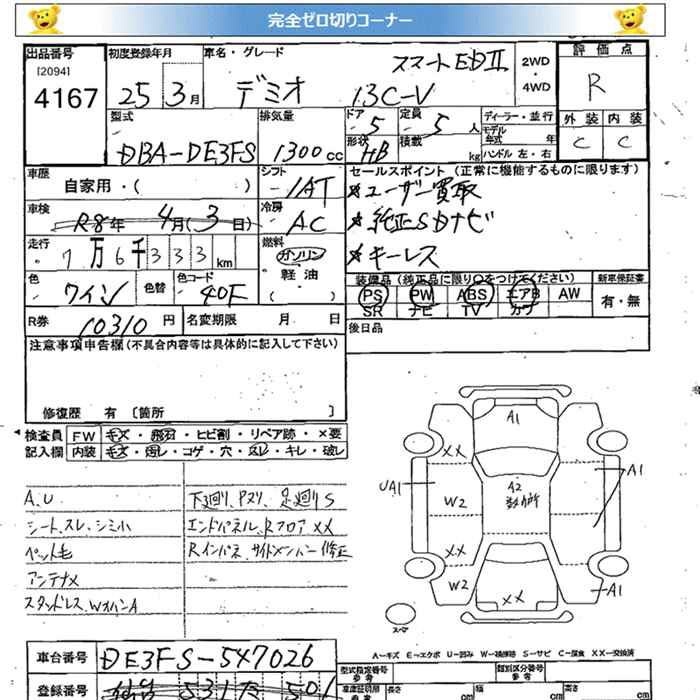 完全ゼロ切りコーナー
出品番号 初度登録年月 車名・グレード 評価点
[2094]
4167
25 3月
デミオ スマートEDⅡ
13C-V
2WD・4WD
R
型式 排気量 ドア 定員 ディーラー・並行 外装 内装
DBA-DE3FS 1300cc 5 5人 モデル年式 年 C C
形状 積載 ハンドル 左・右
HB kg
車歴 シフト セールスポイント(正常に機能するものに限ります)
自家用・( ) IAT ×ユーザー買取
車検 冷房
R8年 4月(3日) AC ×純正SDナビ
走行 燃料
7万6千333km ガソリン ×キーレス
軽油
( )
色 色替 色コード 装備品(純正品に限り○をつけてください) 新車保証書
ワイン 40F PS PW ABS エアB AW 有・無
SR ナビ TV カワ
R券 10310円 名変期限 月 日 後日品
注意事項申告欄(不具合内容等は具体的に記入して下さい)
修復歴 有〔箇所 〕
検査員 FW キズ・飛石・ヒビ割・リペア跡・×要
記入欄 内装 キズ・汚レ・コゲ・穴・スレ・キレ・破レ
A.U 下廻り、Pスリ、足廻りS
シート、スレ、シミ小 エンドパネル、Rフロア XX
ペット毛 Rインパネ、サイドメンバー修正
アンテナX
スタッドレス、Wオハンハ
A1
XX
UA1
A2
A1
W2
XX
W2
XX
A1
スペア
A-キズ E-エクボ U-凹み W-補修跡 S-サビ C-腐食 XX-交換済
車台番号 DE3FS-547026
型式指定番号 参考 類別区分番号 参考
登録番号 仙台 531 た 501
長さ cm 幅 cm 高さ cm